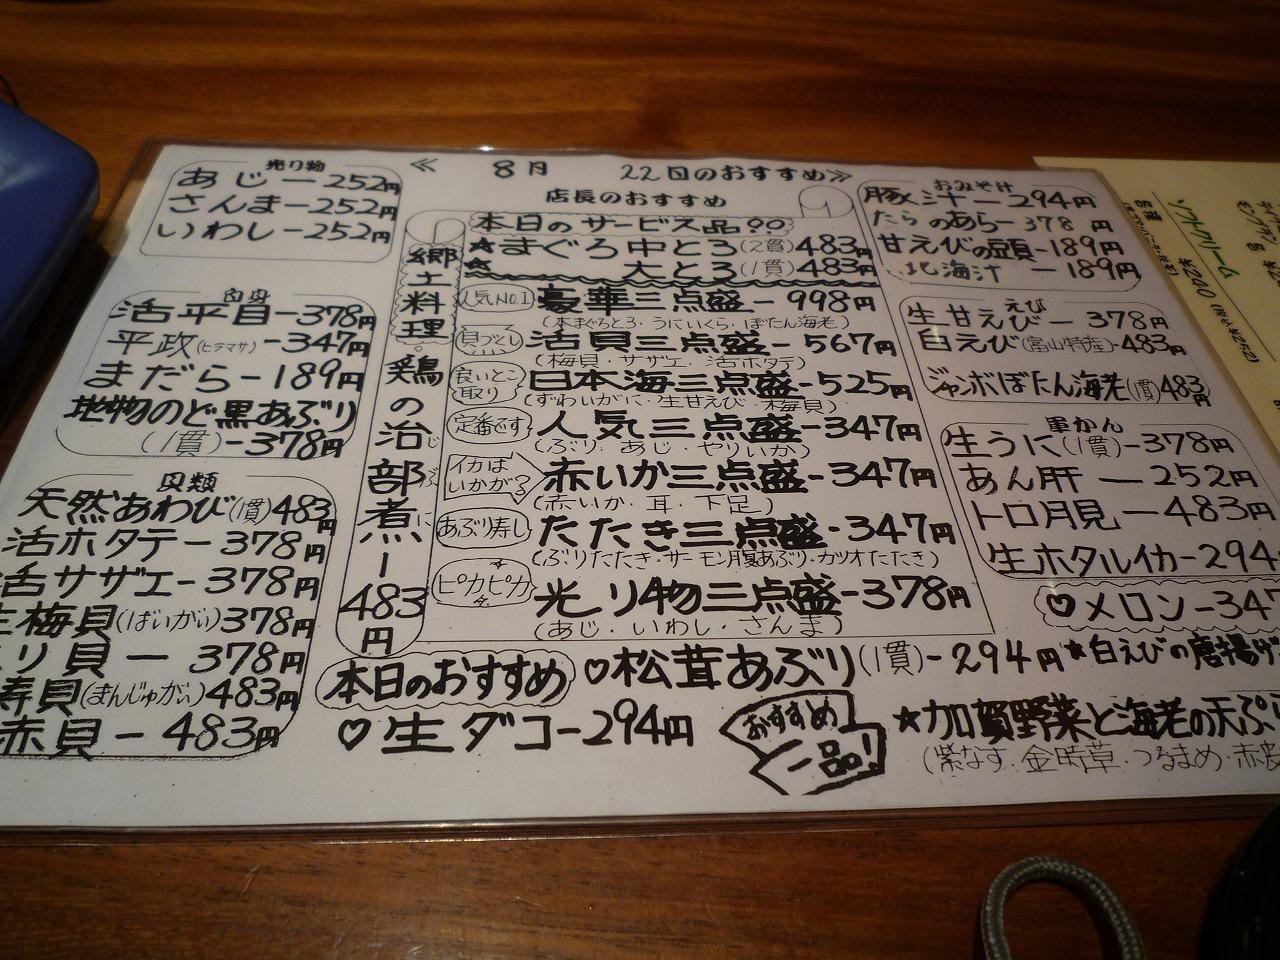 ≪ 8月 22日のおすすめ≫
光り物
あじー252円
さんまー252円
いわしー252円
白身
活平目-378円
平政(ヒラマサ)-347円
まだらー189円
地物のど黒あぶり
(1貫)-378円
貝類
天然あわび(1貫)483円
活ホタテー378円
活サザエ-378円
梅貝(ばいがい)378円
り貝ー378円
寿貝(まんじゅがい)483円
赤貝-483円
郷土料理。鶏の治部煮ー483円
じぶに
店長のおすすめ
本日のサービス品??
★まぐろ中とろ(2貫)483円
★ 大とろ(1貫)483円
人気NO.1 豪華三点盛-998円
(本まぐろとろ・うに・いくら・ぼたん海老)
貝づくし 活貝三点盛-567円
(梅貝・サザエ・活ホタテ)
良いとこ取り 日本海三点盛-525円
(ずわいがに・生甘えび・梅貝)
定番です 人気三点盛-347円
(ぶり・あじ・やりいか)
イカはいかが? 赤いか三点盛-347円
(赤いか・耳・下足)
あぶり寿し たたき三点盛-347円
(ぶりたたき・サーモン腹あぶり・カツオたたき)
ピカピカ 光り物三点盛-378円
(あじ・いわし・さんま)
おみそ汁
豚汁ー294円
たらのあらー378円
甘えびの頭-189円
北海汁ー189円
えび
生甘えびー378円
白えび(富山特産)-483円
ジャンボぼたん海老(1貫)483
軍かん
生うに(1貫)-378円
あん肝ー252円
トロ月見ー483円
生ホタルイカー294
♡メロンー347
本日のおすすめ
♡松茸あぶり(1貫)-294円
♡生ダコ-294円
★白えびの唐揚げ
おすすめ一品!
★加賀野菜と海老の天ぷら
(紫なす・金時草・つるまめ・赤皮
ソフトクリーム